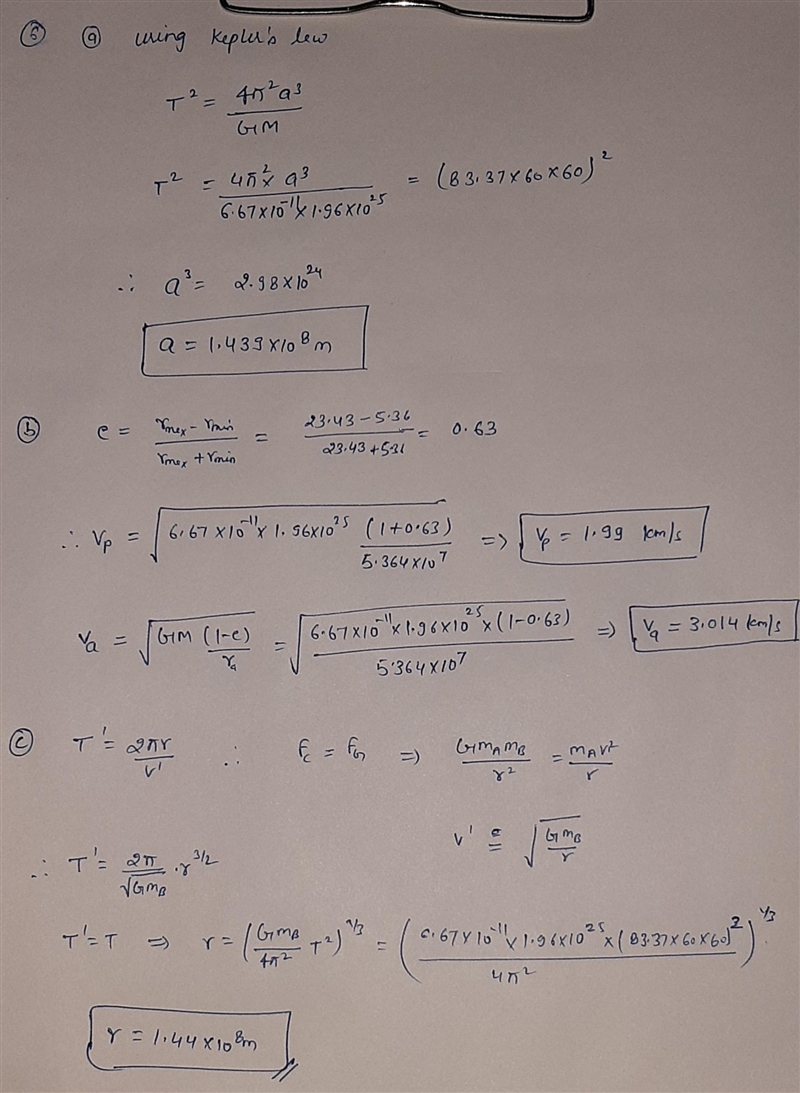 ⑥ ⓐ using Kepler's law
T² = 4π²a³ / GM
T² = 4π² × a³ / 6.67×10⁻¹¹ × 1.96×10²⁵ = (83.37×60×60)²
∴ a³ = 2.98×10²⁴
a = 1.439×10⁸ m
ⓑ e = rmax - rmin / rmax + rmin = 23.43 - 5.36 / 23.43 + 5.36 = 0.63
∴ Vp = √(6.67×10⁻¹¹ × 1.96×10²⁵ (1+0.63) / 5.364×10⁷) => Vp = 1.99 km/s
Va = √(GM (1-e) / ra) = √(6.67×10⁻¹¹ × 1.96×10²⁵ × (1-0.63) / 5.364×10⁷) => Va = 3.014 km/s
ⓒ T' = 2πr / v' ∴ Fc = FG => GmAmB / r² = mAv² / r
v' = √(GmB / r)
∴ T' = 2π / √GmB · r^3/2
T' = T => r = (GmB / 4π² T²)^1/3 = (6.67×10⁻¹¹ × 1.96×10²⁵ × (83.37×60×60)² / 4π²)^1/3
r = 1.44×10⁸ m